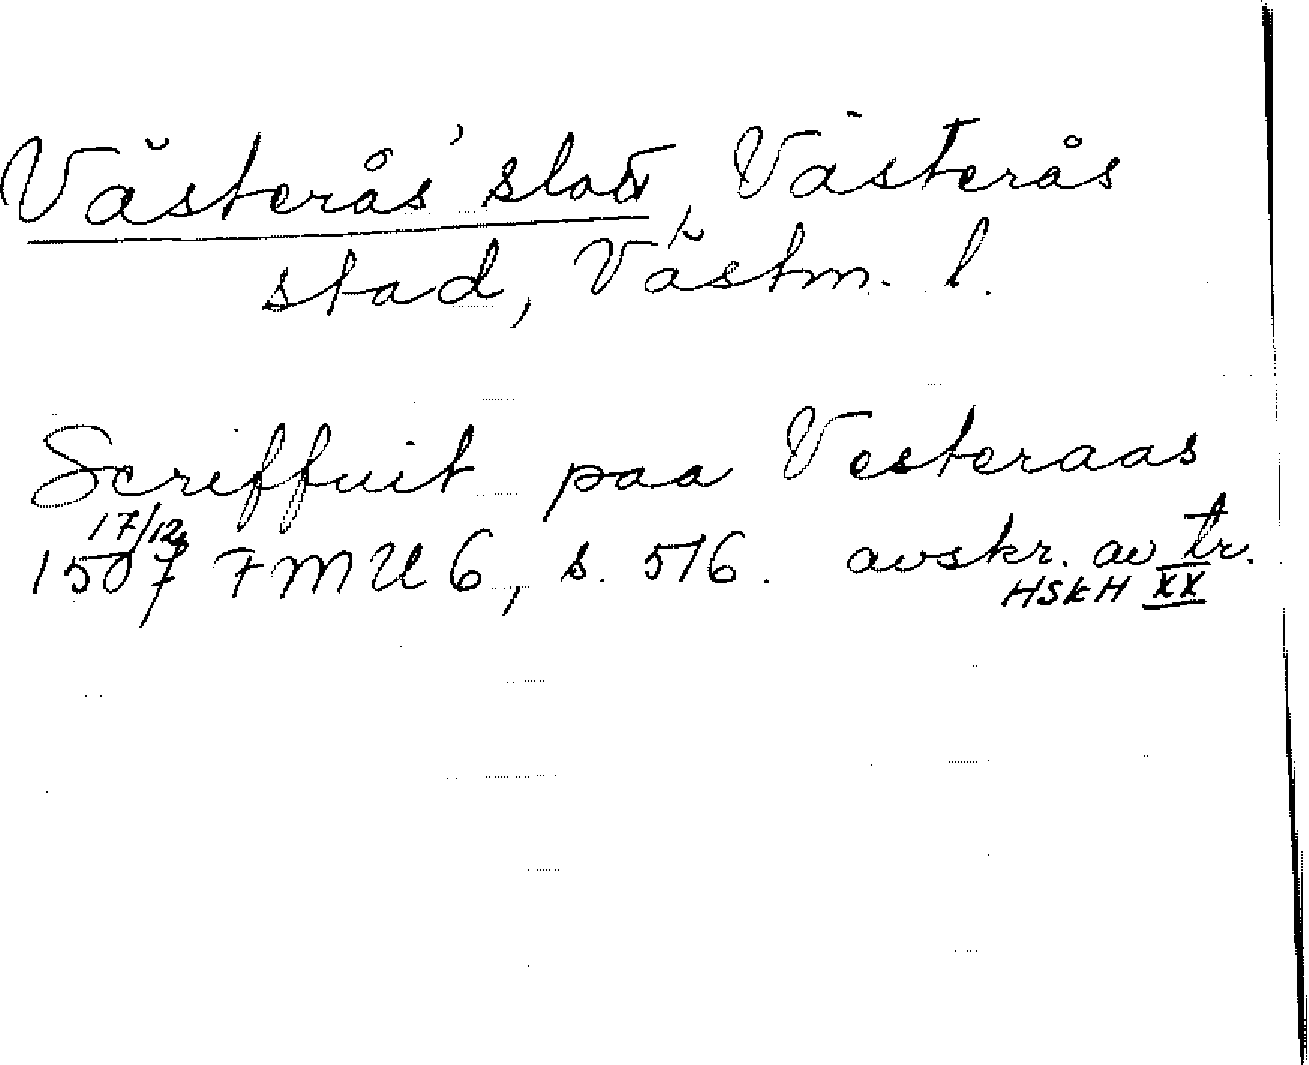 Västerås' slott, Västerås
stad, Västm. l.
Scriffuit paa Vesteraas
17/12
1507 FMU 6, s. 516. avskr. av tr.
HSkH XX